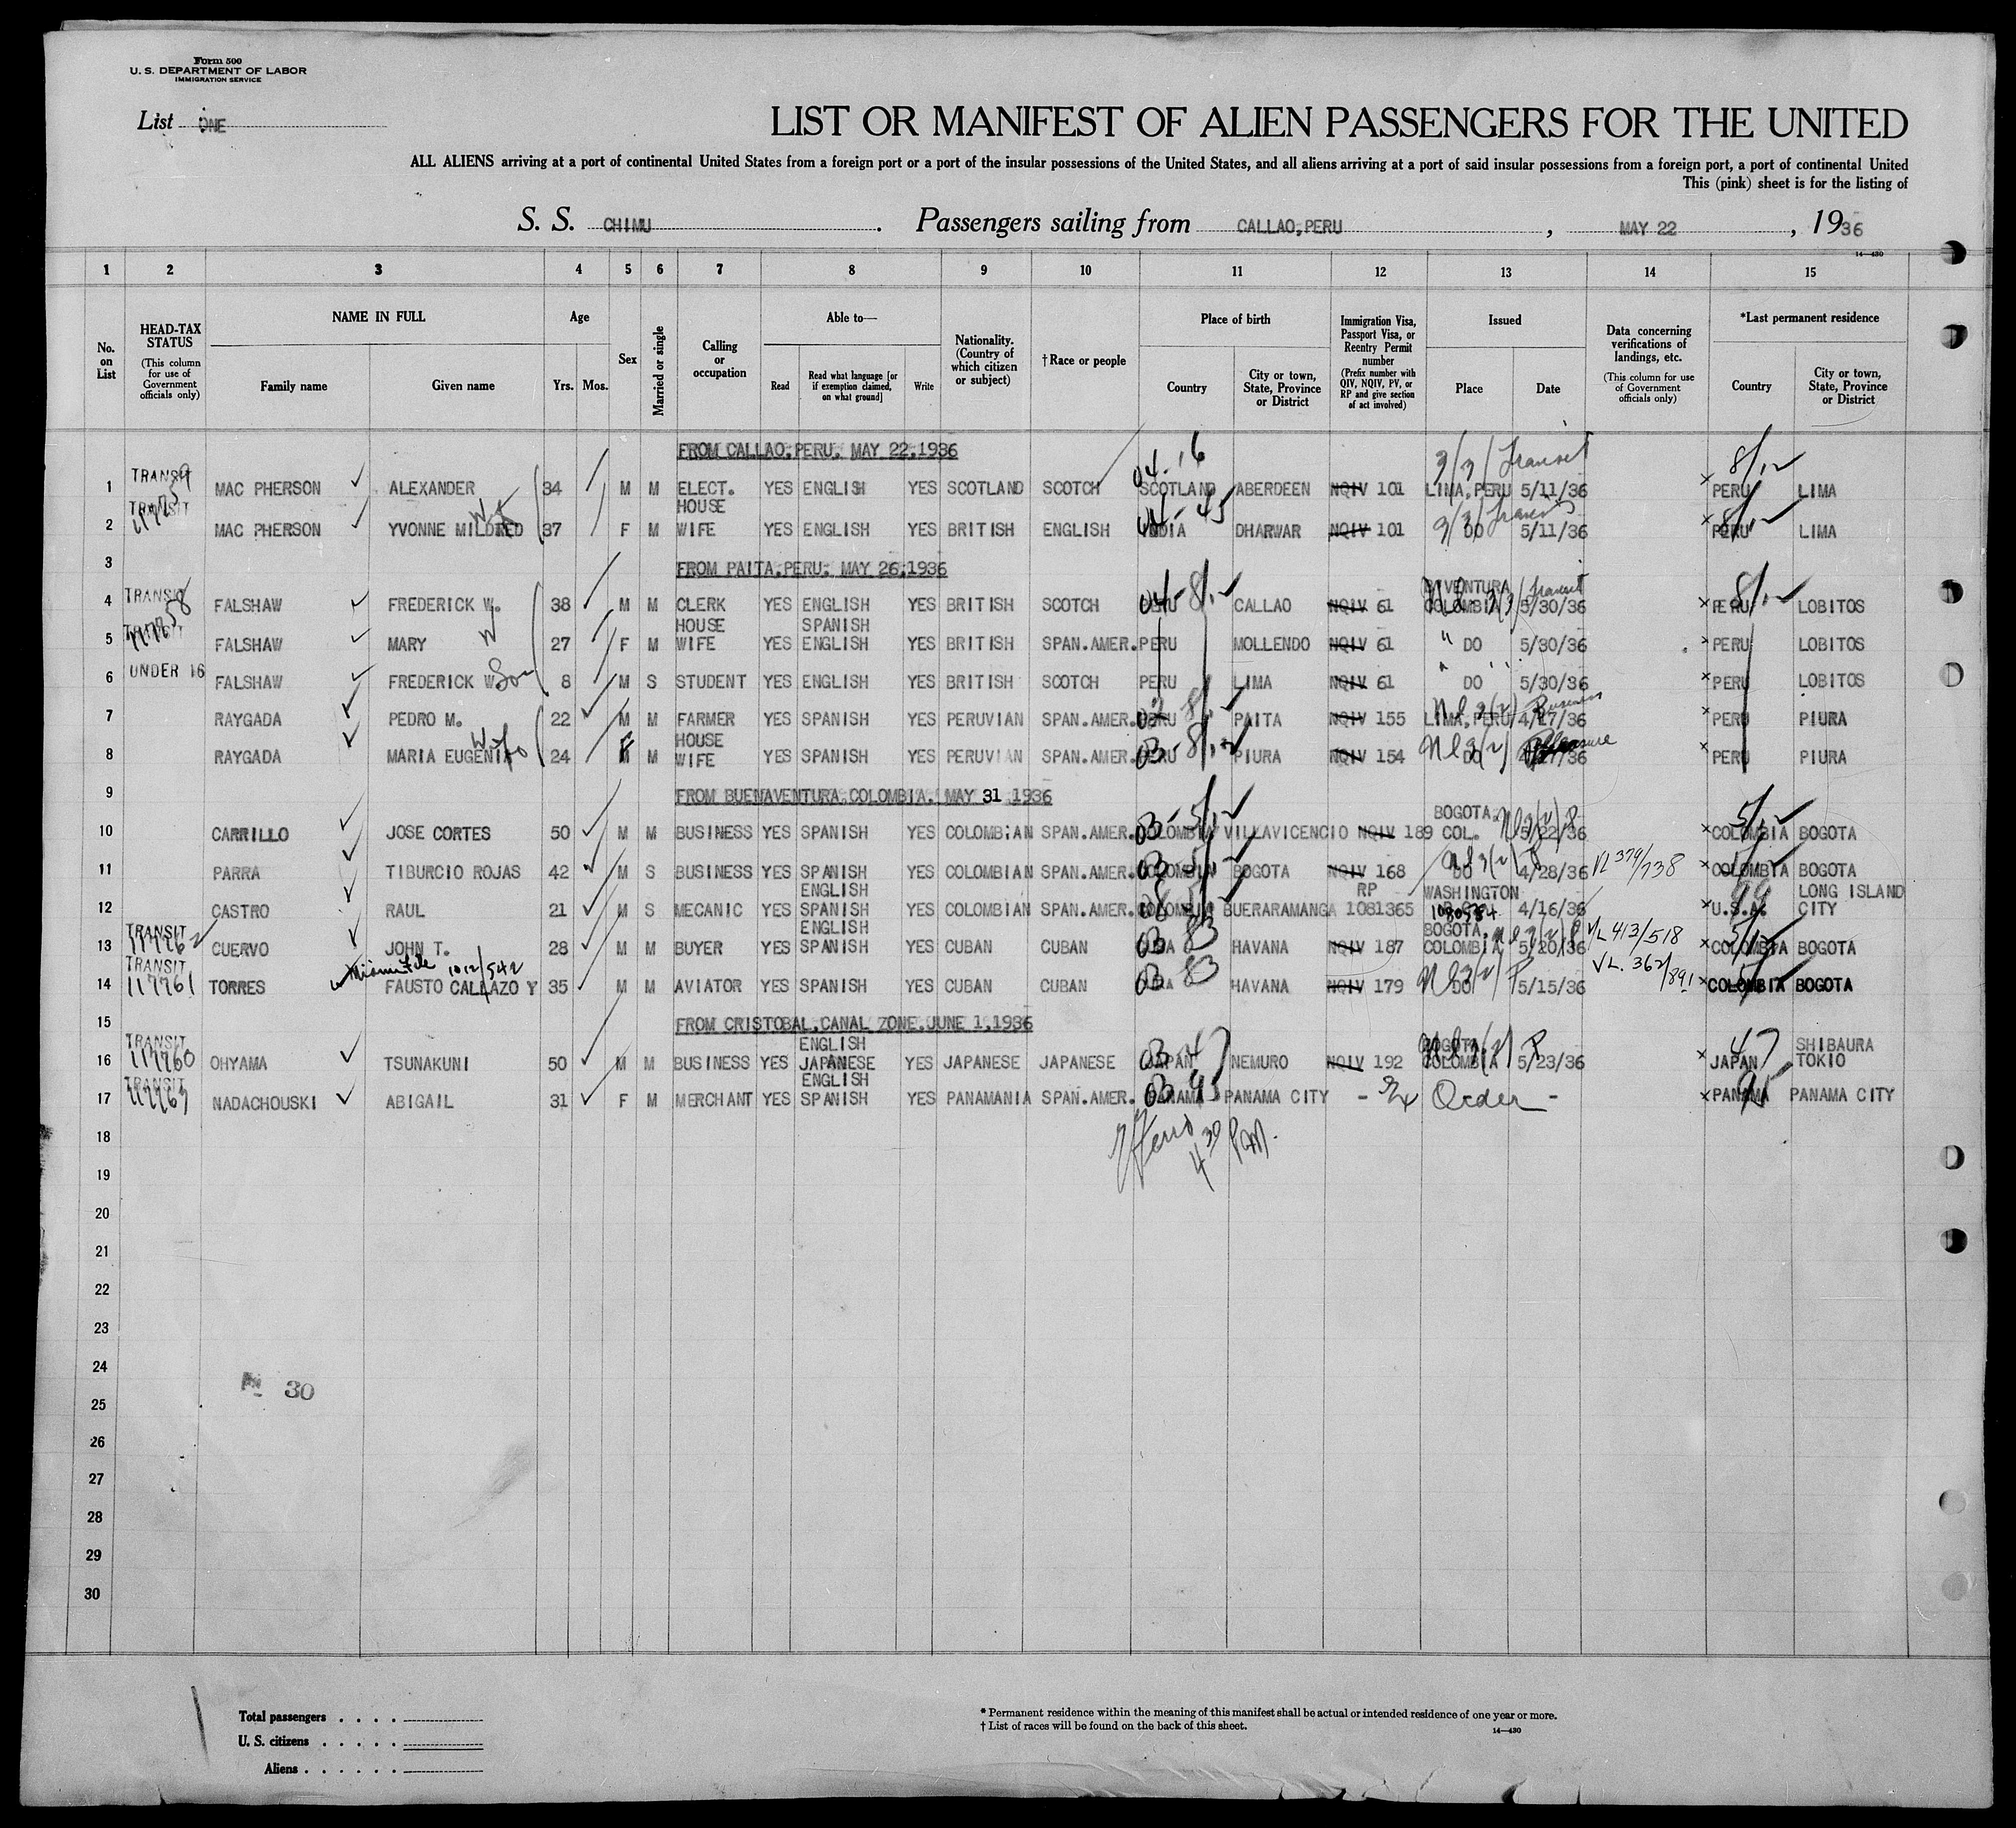 Form 500
U. S. DEPARTMENT OF LABOR
IMMIGRATION SERVICE
List ONE
LIST OR MANIFEST OF ALIEN PASSENGERS FOR THE UNITED
ALL ALIENS arriving at a port of continental United States from a foreign port or a port of the insular possessions of the United States, and all aliens arriving at a port of said insular possessions from a foreign port, a port of continental United
This (pink) sheet is for the listing of
S. S. CHIMU . Passengers sailing from CALLAO, PERU , MAY 22 , 1936
14—430
1 2 3 4 5 6 7 8 9 10 11 12 13 14 15
No. on List
HEAD-TAX STATUS (This column for use of Government officials only)
NAME IN FULL
Family name Given name
Age
Yrs. Mos.
Sex
Married or single
Calling or occupation
Able to—
Read
Read what language [or if exemption claimed, on what ground]
Write
Nationality. (Country of which citizen or subject)
†Race or people
Place of birth
Country
City or town, State, Province or District
Immigration Visa, Passport Visa, or Reentry Permit number (Prefix number with QIV, NQIV, PV, or RP and give section of act involved)
Issued
Place Date
Data concerning verifications of landings, etc. (This column for use of Government officials only)
*Last permanent residence
Country
City or town, State, Province or District
FROM CALLAO, PERU. MAY 22, 1936
04-16 3/3/ Transit 8/12
TRANSIT
1 MAC PHERSON ALEXANDER 34 M M ELECT. YES ENGLISH YES SCOTLAND SCOTCH SCOTLAND ABERDEEN NQIV 101 LIMA, PERU 5/11/36 PERU LIMA
TRANSIT HOUSE
2 MAC PHERSON YVONNE MILDRED 37 F M WIFE YES ENGLISH YES BRITISH ENGLISH INDIA DHARWAR NQIV 101 DO 5/11/36 PERU LIMA
3 FROM PAITA, PERU. MAY 26, 1936
TRANSIT B'VENTURA Transit
4 FALSHAW FREDERICK W. 38 M M CLERK YES ENGLISH YES BRITISH SCOTCH PERU CALLAO NQIV 61 COLOMBIA 5/30/36 PERU LOBITOS
TRANSIT HOUSE SPANISH
5 FALSHAW MARY W 27 F M WIFE YES ENGLISH YES BRITISH SPAN.AMER. PERU MOLLENDO NQIV 61 " DO 5/30/36 PERU LOBITOS
UNDER 16
6 FALSHAW FREDERICK W Son 8 M S STUDENT YES ENGLISH YES BRITISH SCOTCH PERU LIMA NQIV 61 DO 5/30/36 PERU LOBITOS
7 RAYGADA PEDRO M. 22 M M FARMER YES SPANISH YES PERUVIAN SPAN.AMER. PERU PAITA NQIV 155 LIMA, PERU 4/17/36 Business PERU PIURA
HOUSE
8 RAYGADA MARIA EUGENIA Wife 24 F M WIFE YES SPANISH YES PERUVIAN SPAN.AMER. PERU PIURA NQIV 154 DO Pleasure PERU PIURA
9 FROM BUENAVENTURA, COLOMBIA. MAY 31 1936
BOGOTA.
10 CARRILLO JOSE CORTES 50 M M BUSINESS YES SPANISH YES COLOMBIAN SPAN.AMER. COLOMBIA VILLAVICENCIO NQIV 189 COL. 5/22/36 COLOMBIA BOGOTA
11 PARRA TIBURCIO ROJAS 42 M S BUSINESS YES SPANISH YES COLOMBIAN SPAN.AMER. COLOMBIA BOGOTA NQIV 168 DO 4/28/36 VL 379/738 COLOMBIA BOGOTA
ENGLISH RP WASHINGTON LONG ISLAND
12 CASTRO RAUL 21 M S MECANIC YES SPANISH YES COLOMBIAN SPAN.AMER. COLOMBIA BUERARAMANGA 1081365 1080584 4/16/36 U.S.A. CITY
TRANSIT ENGLISH BOGOTA.
117762
13 CUERVO JOHN T. 28 M M BUYER YES SPANISH YES CUBAN CUBAN CUBA HAVANA NQIV 187 COLOMBIA 5/20/36 VL 413/518 COLOMBIA BOGOTA
TRANSIT 1012/542
117761 VL. 362/891
14 TORRES FAUSTO CALLAZO Y 35 M M AVIATOR YES SPANISH YES CUBAN CUBAN CUBA HAVANA NQIV 179 DO 5/15/36 COLOMBIA BOGOTA
15 FROM CRISTOBAL, CANAL ZONE. JUNE 1, 1936
TRANSIT ENGLISH BOGOTA SHIBAURA
117760
16 OHYAMA TSUNAKUNI 50 M M BUSINESS YES JAPANESE YES JAPANESE JAPANESE JAPAN NEMURO NQIV 192 COLOMBIA 5/23/36 JAPAN TOKIO
TRANSIT ENGLISH
117763
17 NADACHOUSKI ABIGAIL 31 F M MERCHANT YES SPANISH YES PANAMANIA SPAN.AMER. PANAMA PANAMA CITY - Order - PANAMA PANAMA CITY
18 4 30 P.M.
19
20
21
22
23
24
25
26
27
28
29
30
30
Total passengers . . . .
U. S. citizens . . . . .
Aliens . . . . . .
* Permanent residence within the meaning of this manifest shall be actual or intended residence of one year or more.
† List of races will be found on the back of this sheet.
14—430